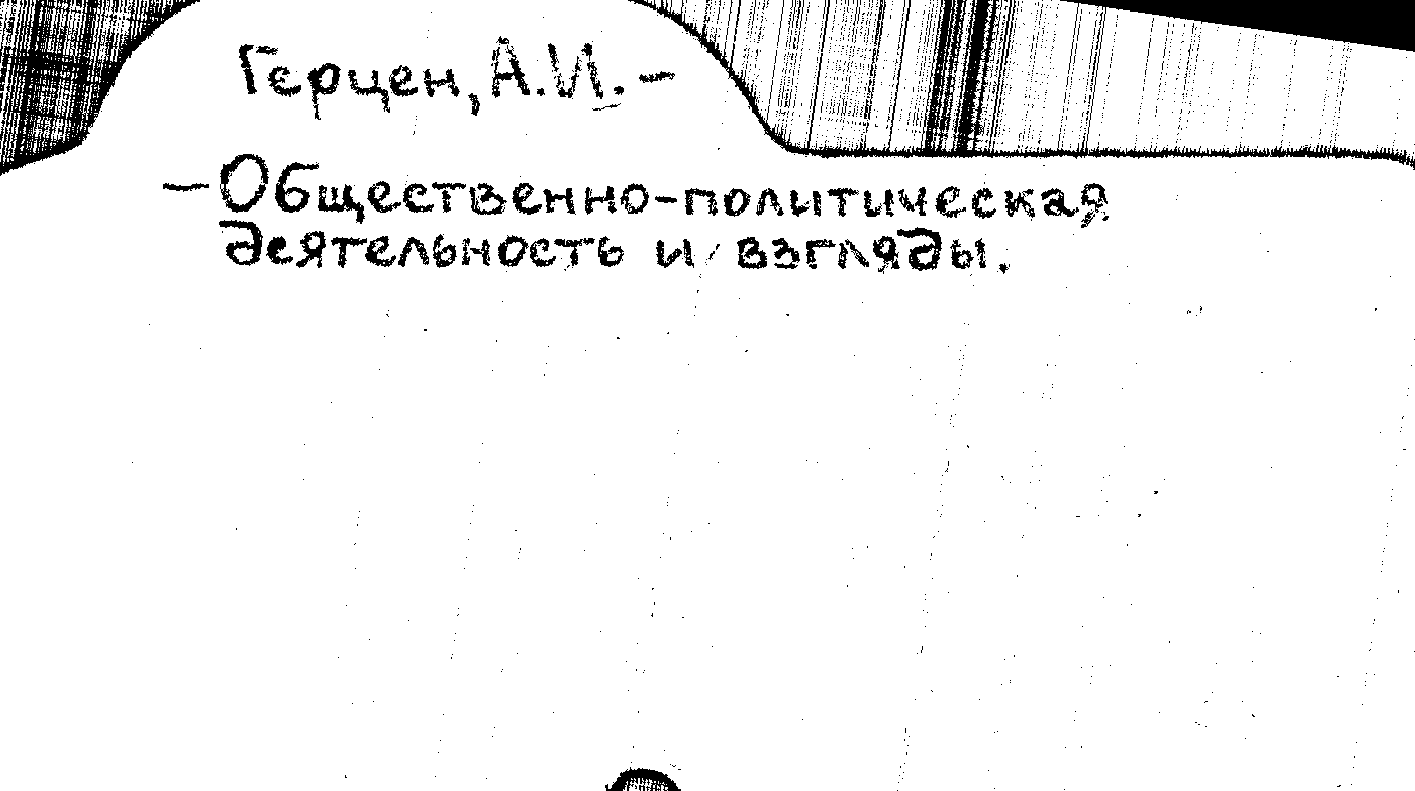 Герцен, А.И. –
– Общественно-политическая
деятельность и взгляды.